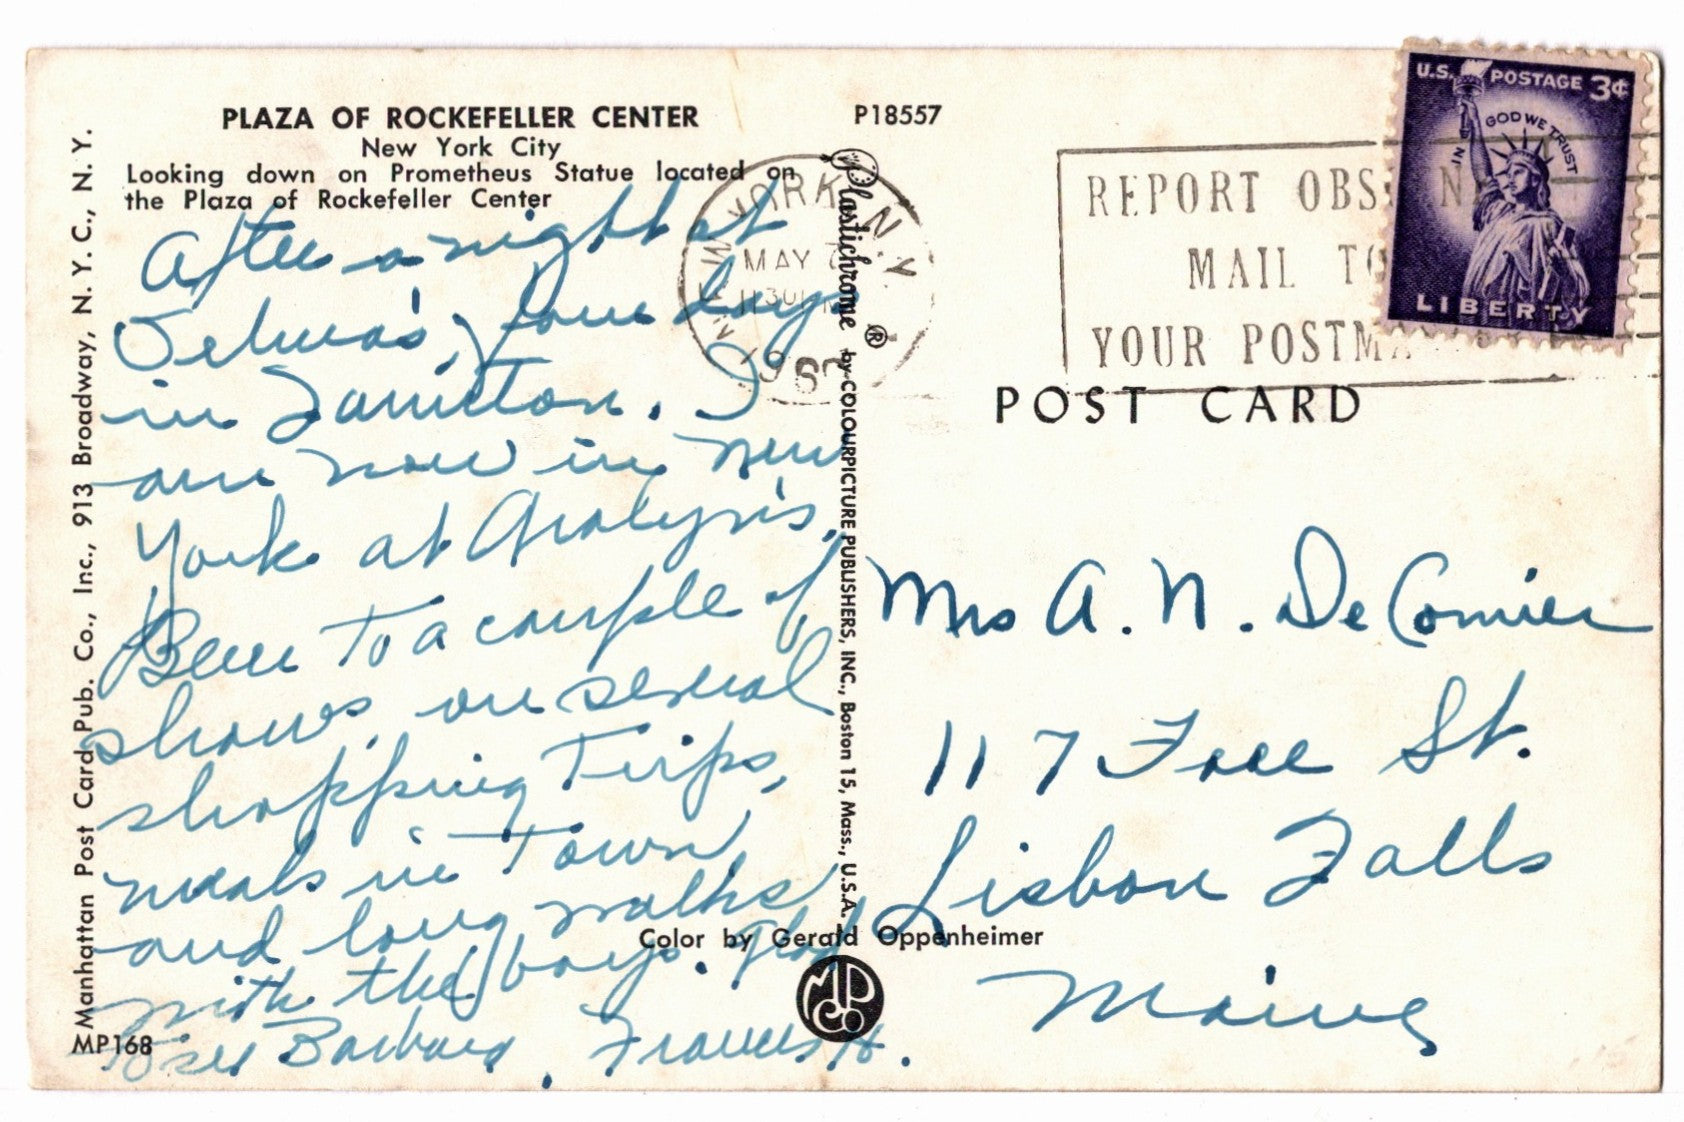 PLAZA OF ROCKEFELLER CENTER
New York City
Looking down on Prometheus Statue located on
the Plaza of Rockefeller Center
P18557
After a night at
Velma's, four days
in Taunton. I
am now in New
York at Carolyn's.
Been to a couple of
shows, on several
shopping trips,
meals in town
and long walks
with the boys. Glad
Barbara, Frances H.
Manhattan Post Card Pub. Co., Inc., 913 Broadway, N.Y.C., N.Y.
MP168
Plastichrome ® by COLOURPICTURE PUBLISHERS, INC., Boston 15, Mass., U.S.A.
Color by Gerald Oppenheimer
MPCo
NEW YORK, N.Y.
MAY
1130
196
REPORT OBS NE
MAIL TO
YOUR POSTMA
U.S. POSTAGE 3¢
IN GOD WE TRUST
LIBERTY
POST CARD
Mrs A. N. DeCormier
117 St.
Lisbon Falls
Maine